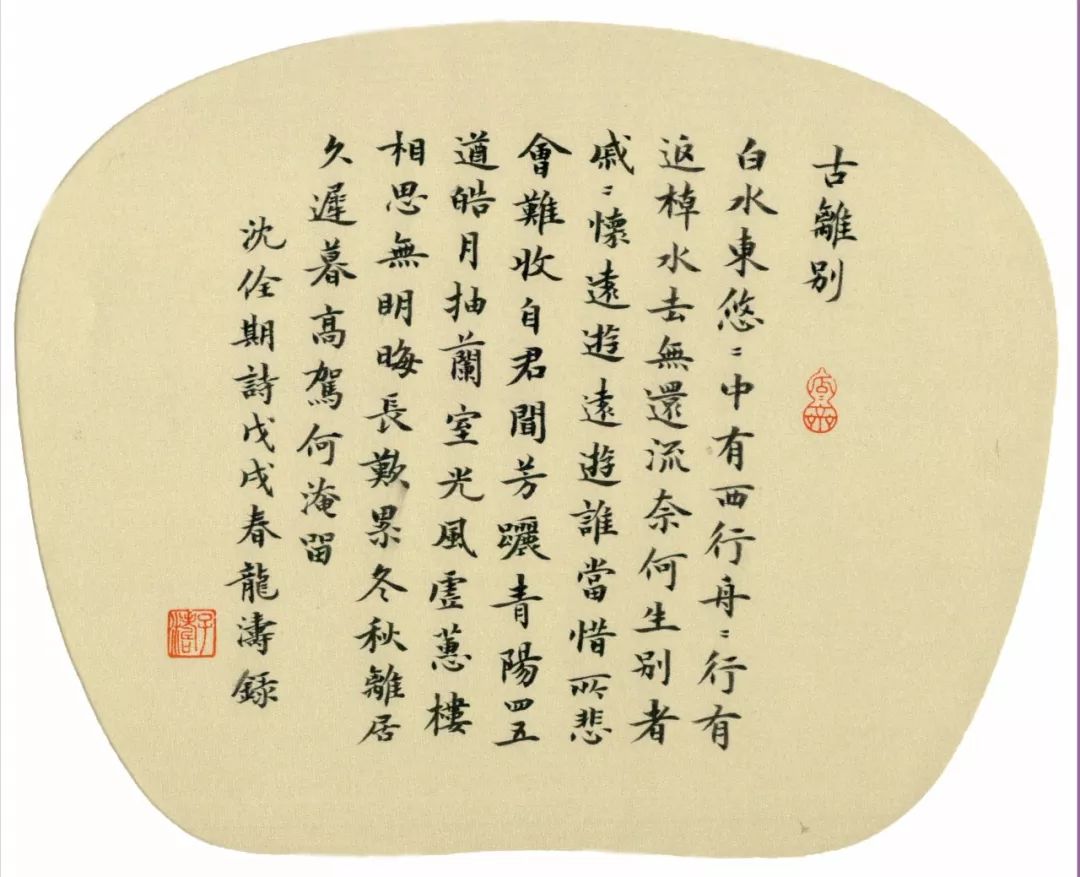 古離别
白水東悠〻中有西行舟〻行有
返棹水去無還流奈何生别者
戚〻懷遠遊遠遊誰當惜所悲
會難收自君間芳躧青陽四五
遒皓月抽蘭室光風虛蕙樓
相思無明晦長歎累冬秋離居
久遲暮高駕何淹留
沈佺期詩戊戌春龍濤錄